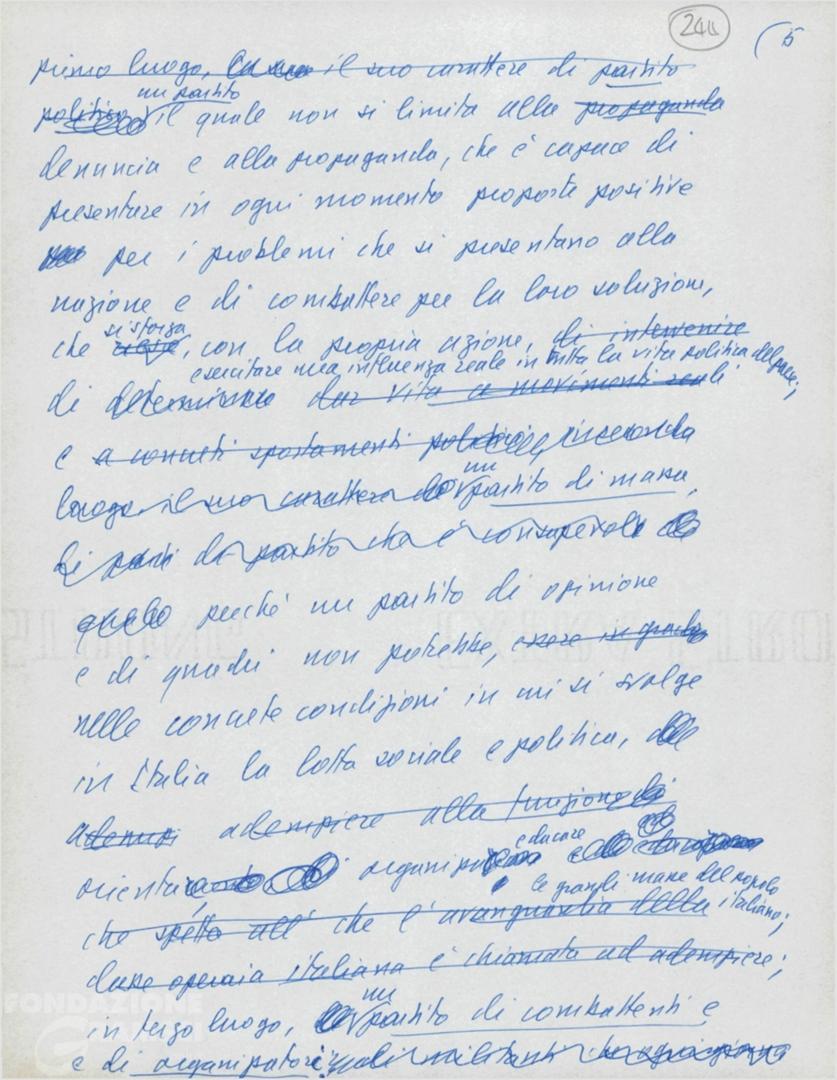 244 5
primo luogo, il suo carattere di partito
politico un partito il quale non si limita alla propaganda
denuncia e alla propaganda, che è capace di
presentare in ogni momento proposte positive
per i problemi che si presentano alla
nazione e di combattere per la loro soluzione,
che riesce, si sforza, con la propria azione, di intervenire
esercitare una influenza reale in tutta la vita politica del paese;
di determinare dar vita a movimenti reali
e a concreti spostamenti politici, in secondo
luogo, il suo carattere un partito di massa,
di partito che è consapevole
perché un partito di opinione
e di quadri non potrebbe, essere in grado
nelle concrete condizioni in cui si svolge
in Italia la lotta sociale e politica,
adempiere alla funzione di
orientare, organizzare educare
le grandi masse del popolo
che spetta all' che l'avanguardia della italiano;
classe operaia italiana è chiamata ad adempiere;
in terzo luogo, un partito di combattenti e
e di organizzatori, militanti
FONDAZIONE